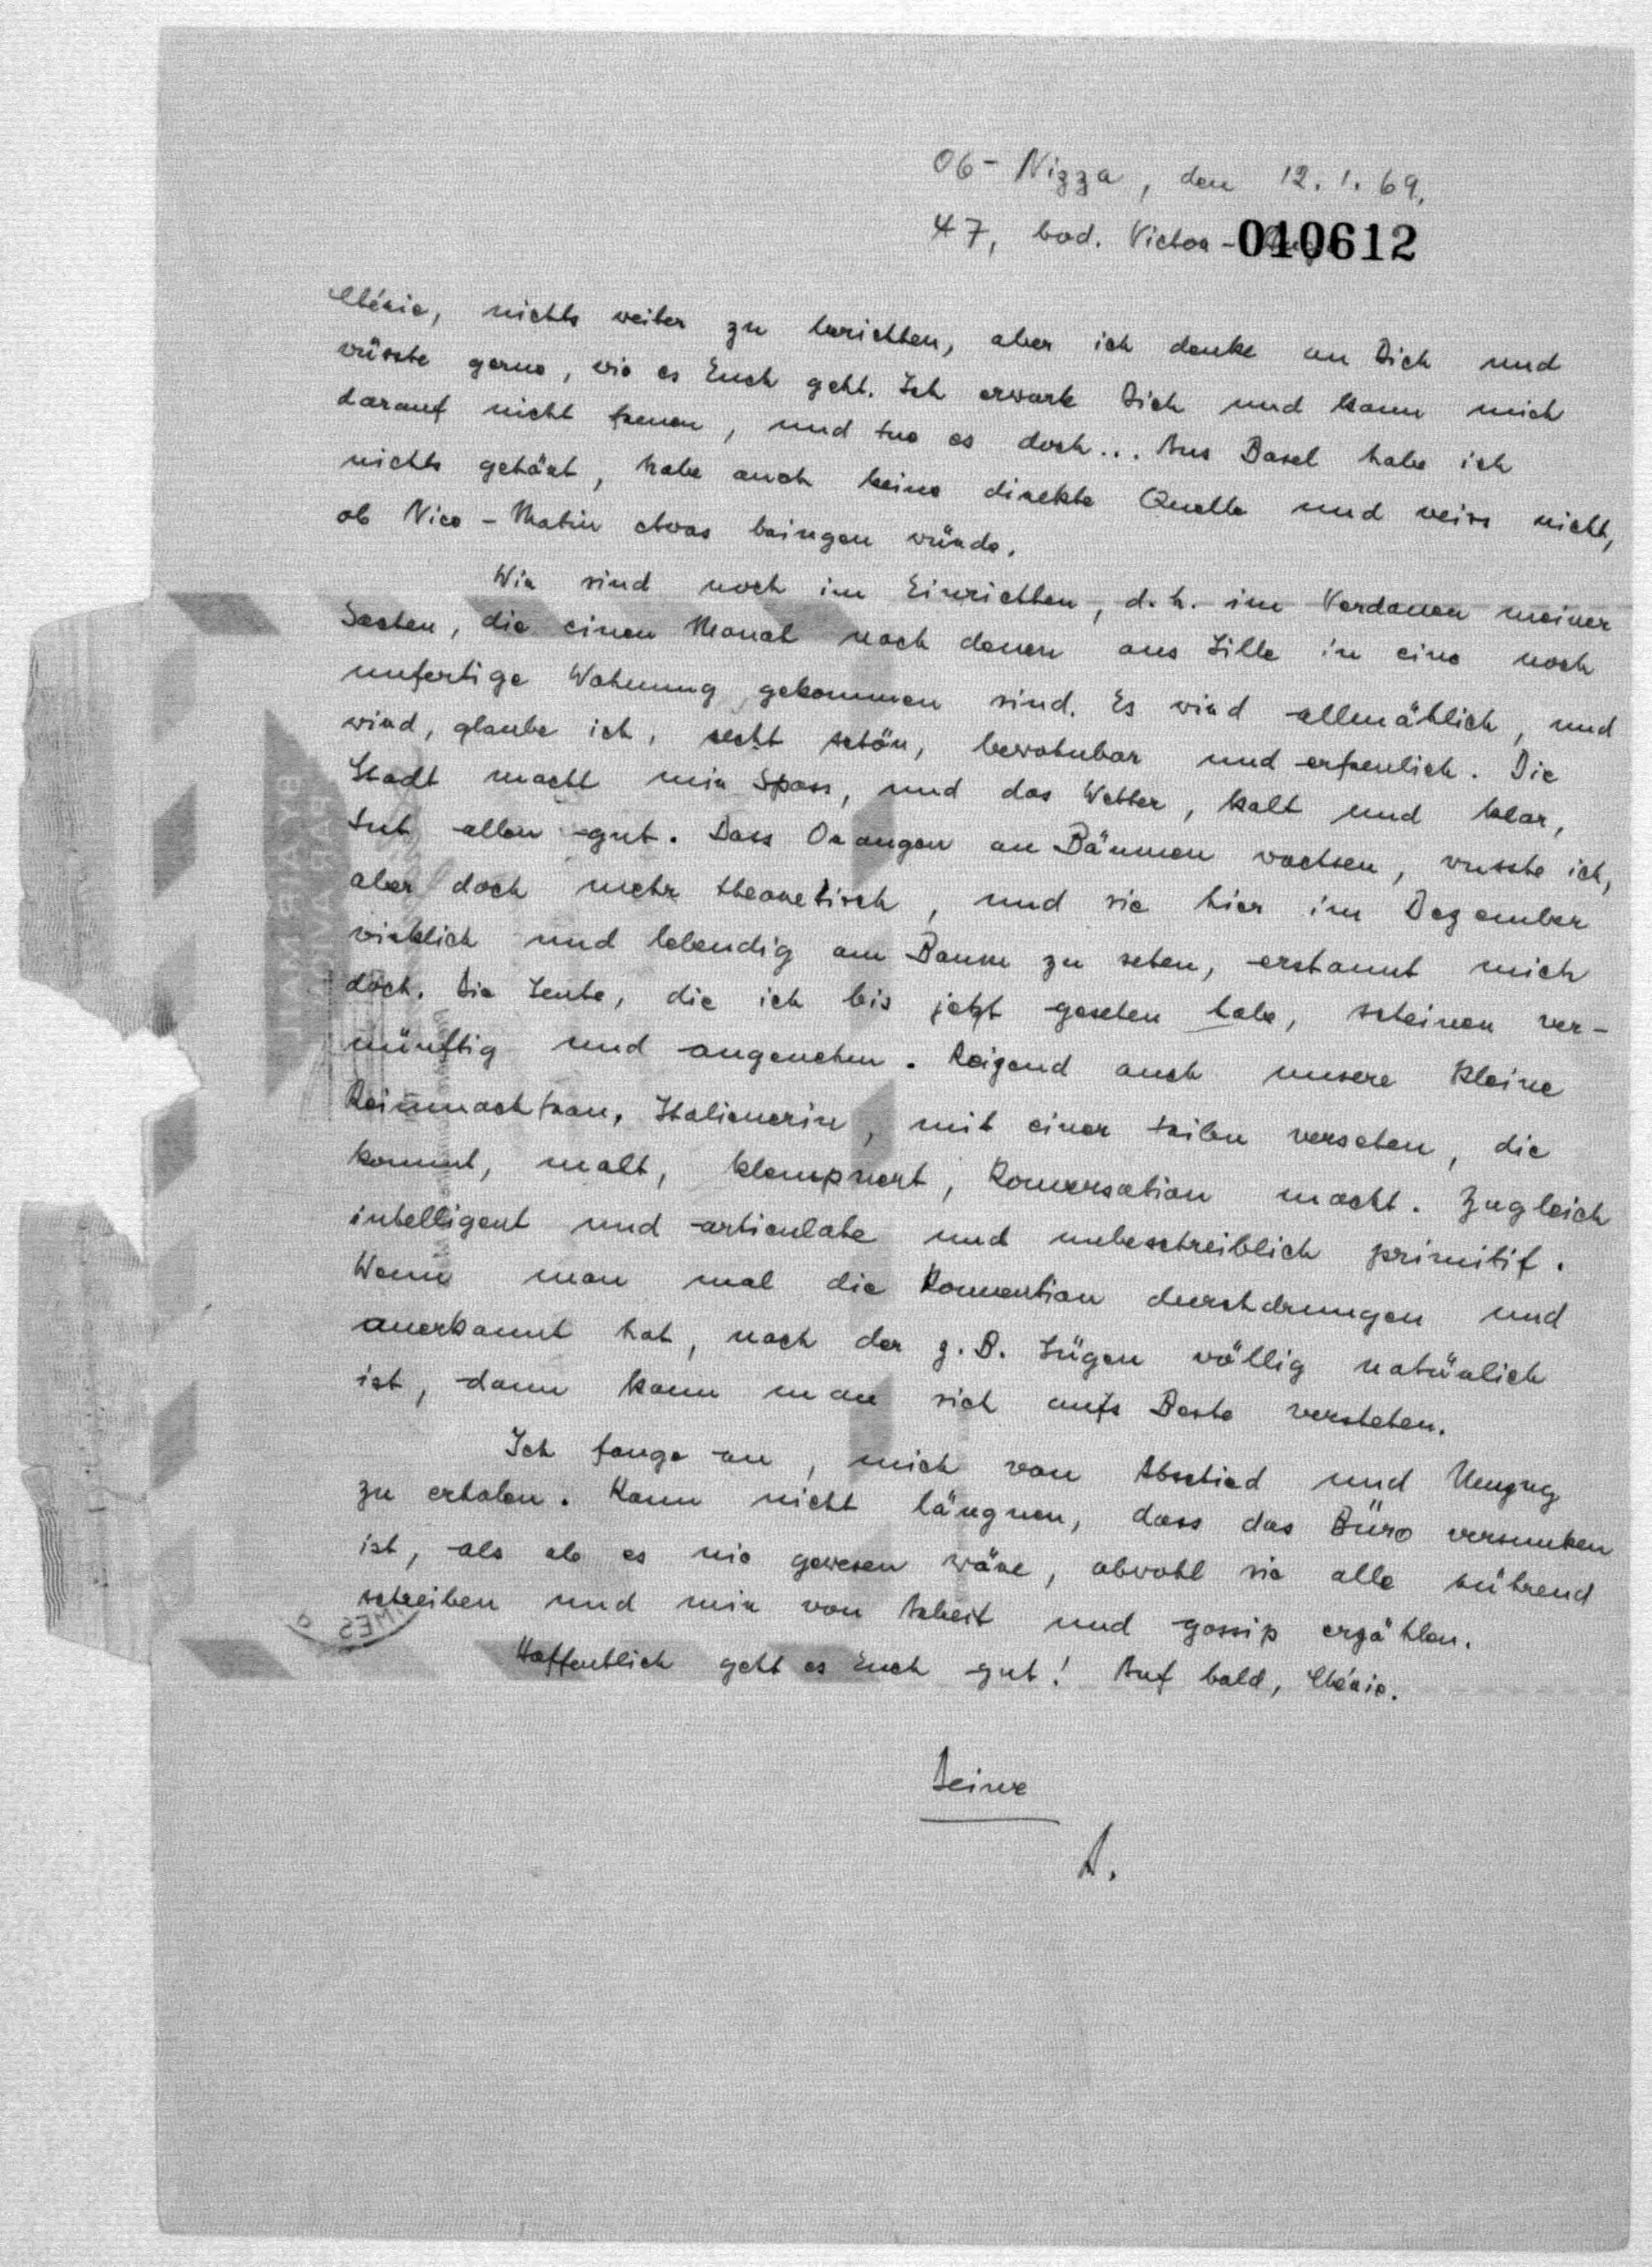 06- Nizza, den 12.1.69.
47, bvd. Victor-
010612
Chérie, nichts weiter zu berichten, aber ich denke an Dich und
wüsste gerne, wie es Euch geht. Ich erwarte Dich und kann mich
darauf nicht freuen, und tue es doch... Aus Basel habe ich
nichts gehört, habe auch keine direkte Quelle und weiss nicht,
ob Nice-Matin etwas bringen würde.
Wir sind noch im Einrichten, d.h. im Verdauen meiner
Sachen, die einen Monat nach denen aus Lille in eine noch
unfertige Wohnung gekommen sind. Es wird allmählich, und
wird, glaube ich, recht schön, bewohnbar und erfreulich. Die
Stadt macht mir Spass, und das Wetter, kalt und klar,
tut allen gut. Dass Orangen an Bäumen wachsen, wusste ich,
aber doch mehr theoretisch, und sie hier im Dezember
wirklich und lebendig am Baum zu sehen, erstaunt mich
doch. Die Leute, die ich bis jetzt gesehen habe, scheinen ver-
nünftig und angenehm. Reizend auch unsere kleine
Reinmachfrau, Italienerin, mit einer tribu versehen, die
kommt, malt, klempnert, Konversation macht. Zugleich
intelligent und articulate und unbeschreiblich primitif.
Wenn man mal die Konvention durchdrungen und
anerkannt hat, nach der z.B. Lügen völlig natürlich
ist, dann kann man sich aufs Beste verstehen.
Ich fange an, mich von Abschied und Umzug
zu erholen. Kann nicht läugnen, dass das Büro versunken
ist, als ob es nie gewesen wäre, obwohl sie alle rührend
schreiben und mir von Arbeit und gossip erzählen.
Hoffentlich geht es Euch gut! Auf bald, Chérie.
Deine
A.